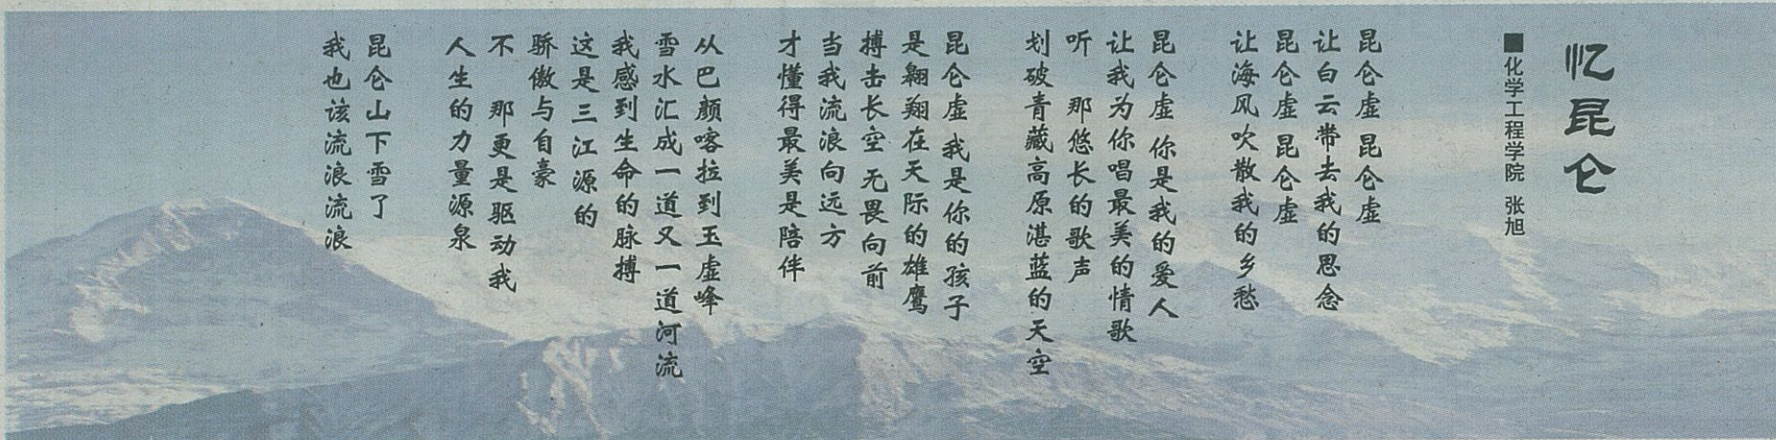 忆昆仑
■化学工程学院 张旭
昆仑虚 昆仑虚
让白云带去我的思念
昆仑虚 昆仑虚
让海风吹散我的乡愁
昆仑虚 你是我的爱人
让我为你唱最美的情歌
听 那悠长的歌声
划破青藏高原湛蓝的天空
昆仑虚 我是你的孩子
是翱翔在天际的雄鹰
搏击长空 无畏向前
当我流浪向远方
才懂得最美是陪伴
从巴颜喀拉到玉虚峰
雪水汇成一道又一道河流
我感到生命的脉搏
这是三江源的
骄傲与自豪
不 那更是驱动我
人生的力量源泉
昆仑山下雪了
我也该流浪流浪